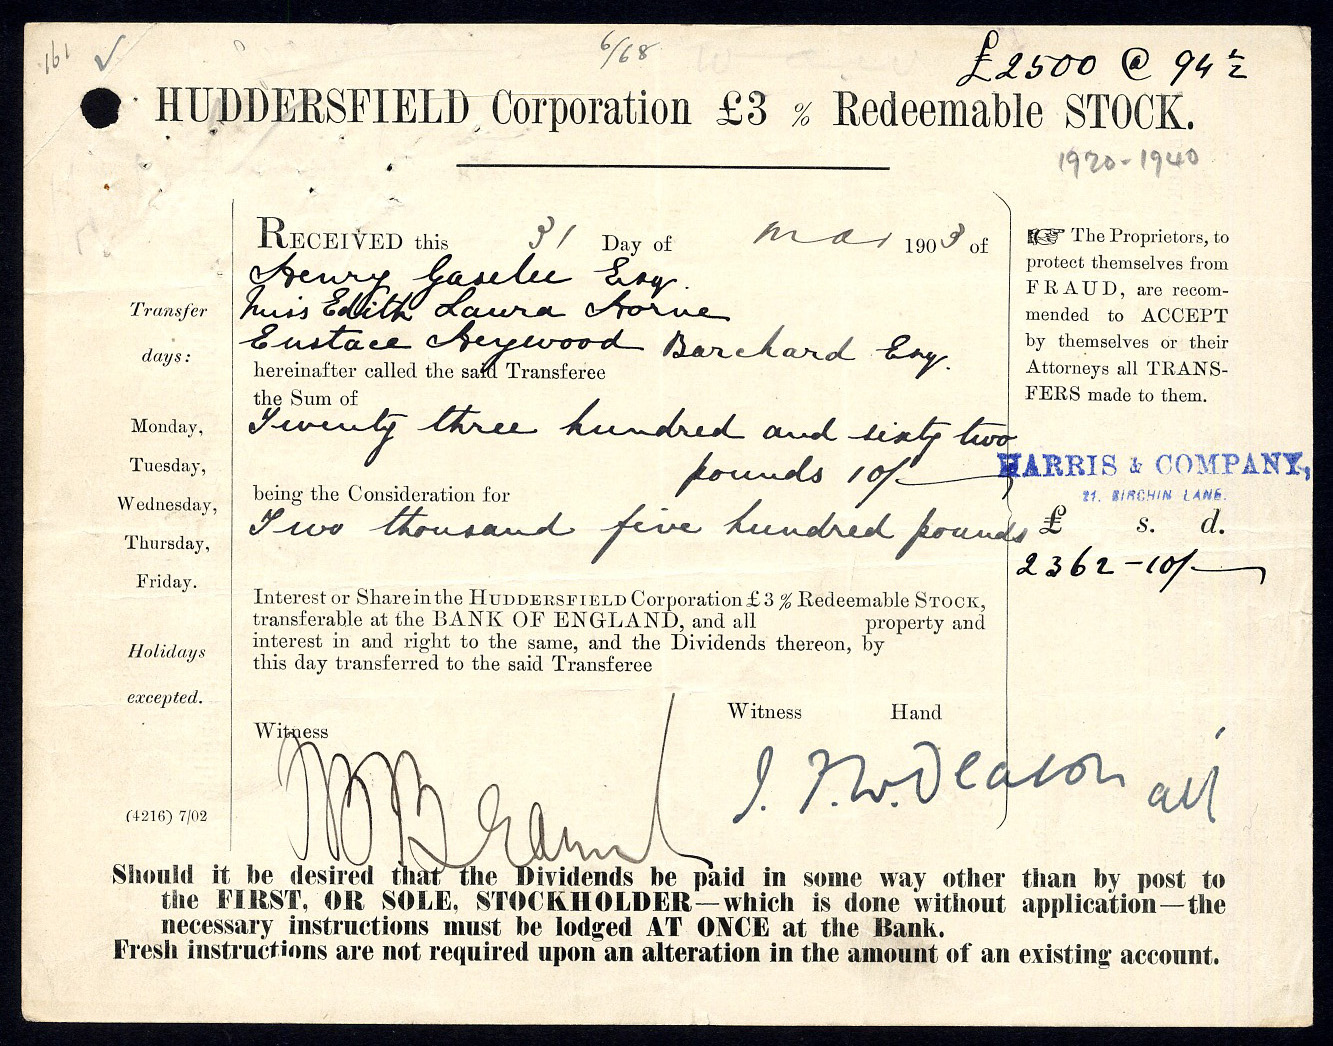 161 ✓
6/68
£2500 @ 94 ½
HUDDERSFIELD Corporation £3 % Redeemable STOCK.
1920-1940
RECEIVED this 31 Day of Mar 1903 of
Henry Gaselee Esq.
Miss Edith Laura Horne
Eustace Heywood Barchard Esq.
hereinafter called the said Transferee
the Sum of
Twenty three hundred and sixty two
pounds 10/-
being the Consideration for
Two thousand five hundred pounds
Interest or Share in the HUDDERSFIELD Corporation £3 % Redeemable STOCK,
transferable at the BANK OF ENGLAND, and all property and
interest in and right to the same, and the Dividends thereon, by
this day transferred to the said Transferee
Witness Hand
Witness
Transfer
days:
Monday,
Tuesday,
Wednesday,
Thursday,
Friday.
Holidays
excepted.
(4216) 7/02
☞ The Proprietors, to
protect themselves from
FRAUD, are recom-
mended to ACCEPT
by themselves or their
Attorneys all TRANS-
FERS made to them.
HARRIS & COMPANY,
21, BIRCHIN LANE.
£ s. d.
2362-10/-
J. F. W. Deacon
Should it be desired that the Dividends be paid in some way other than by post to
the FIRST, OR SOLE, STOCKHOLDER—which is done without application—the
necessary instructions must be lodged AT ONCE at the Bank.
Fresh instructions are not required upon an alteration in the amount of an existing account.